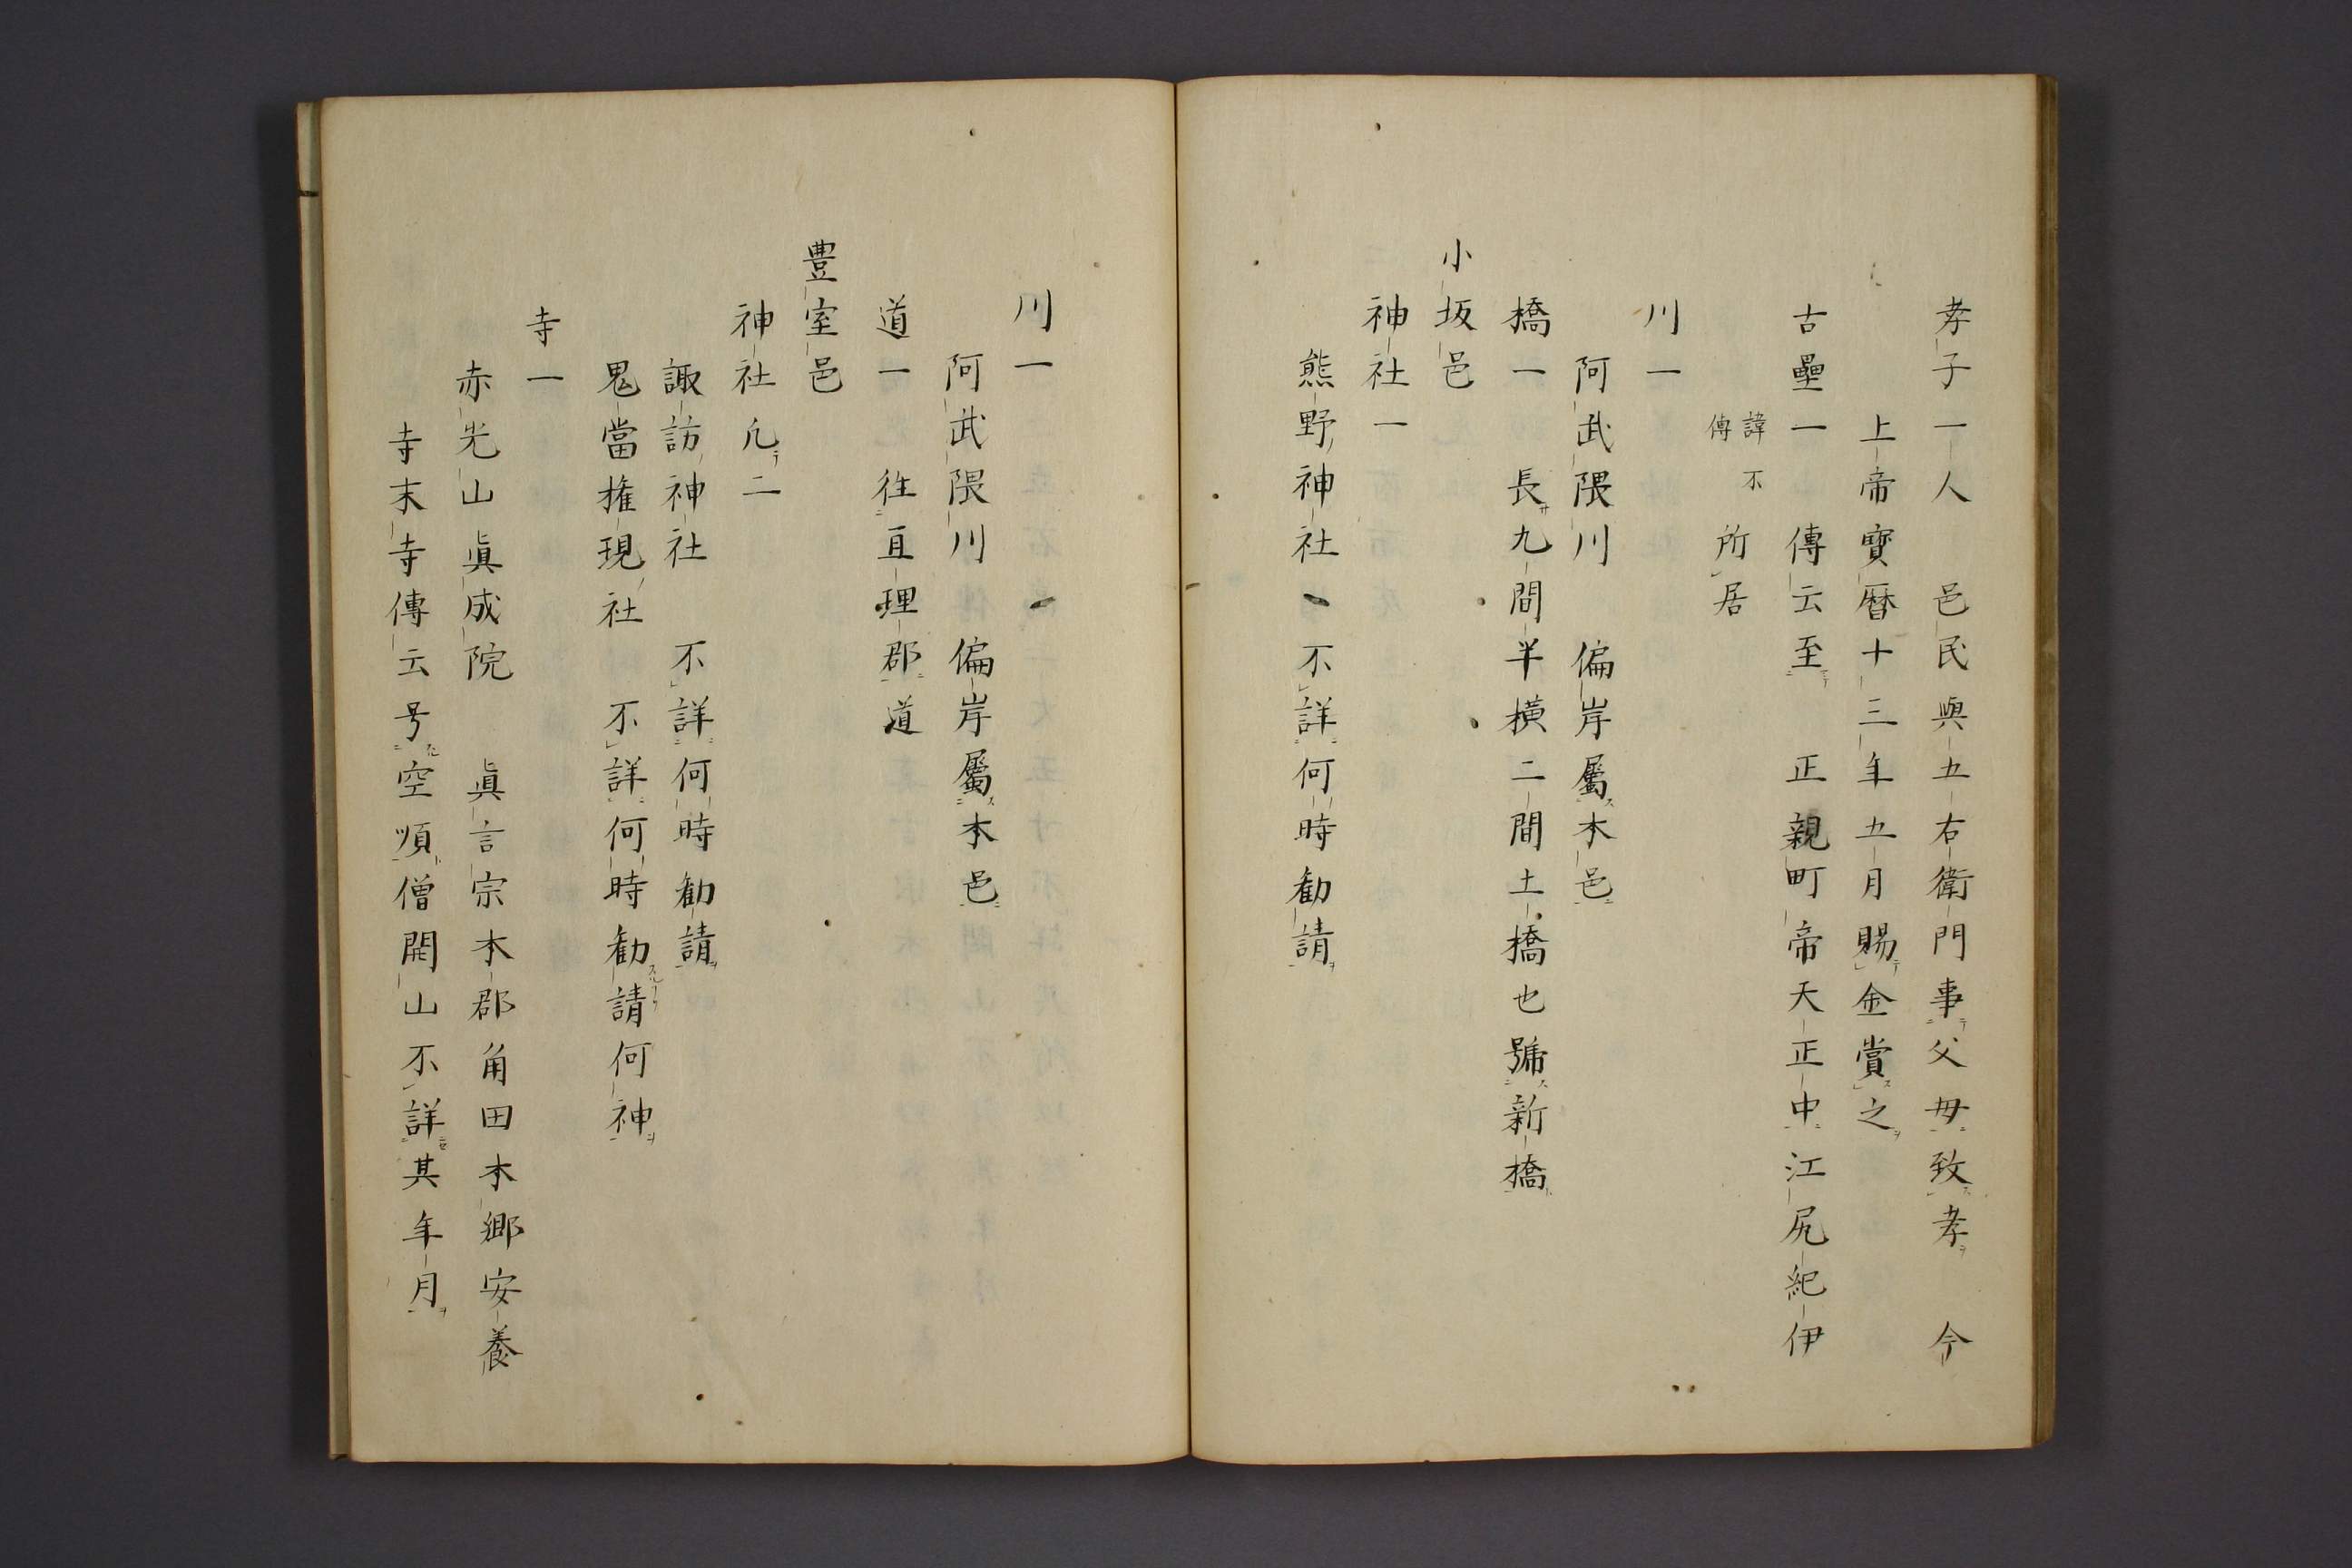 孝子一人　邑民與五右衛門事父毋致孝　今
上帝寳暦十三年五月賜金賞之
古壘一　傳云至　正親町帝天正中江尻紀伊
諱不
傳
所居
川一
阿武隈川　偏岸屬本邑
橋一　長九間半横二間土橋也號新橋
小坂邑
神社一
熊野神社　不詳何時勧請
川一
阿武隈川　偏岸屬本邑
道一　徃亘理郡道
豊室邑
神社凡二
諏訪神社　不詳何時勧請
鬼當権現社　不詳何時勧請何神
寺一
赤光山眞成院　眞言宗本郡角田本郷安養
寺末寺傳云号空順僧開山不詳其年月